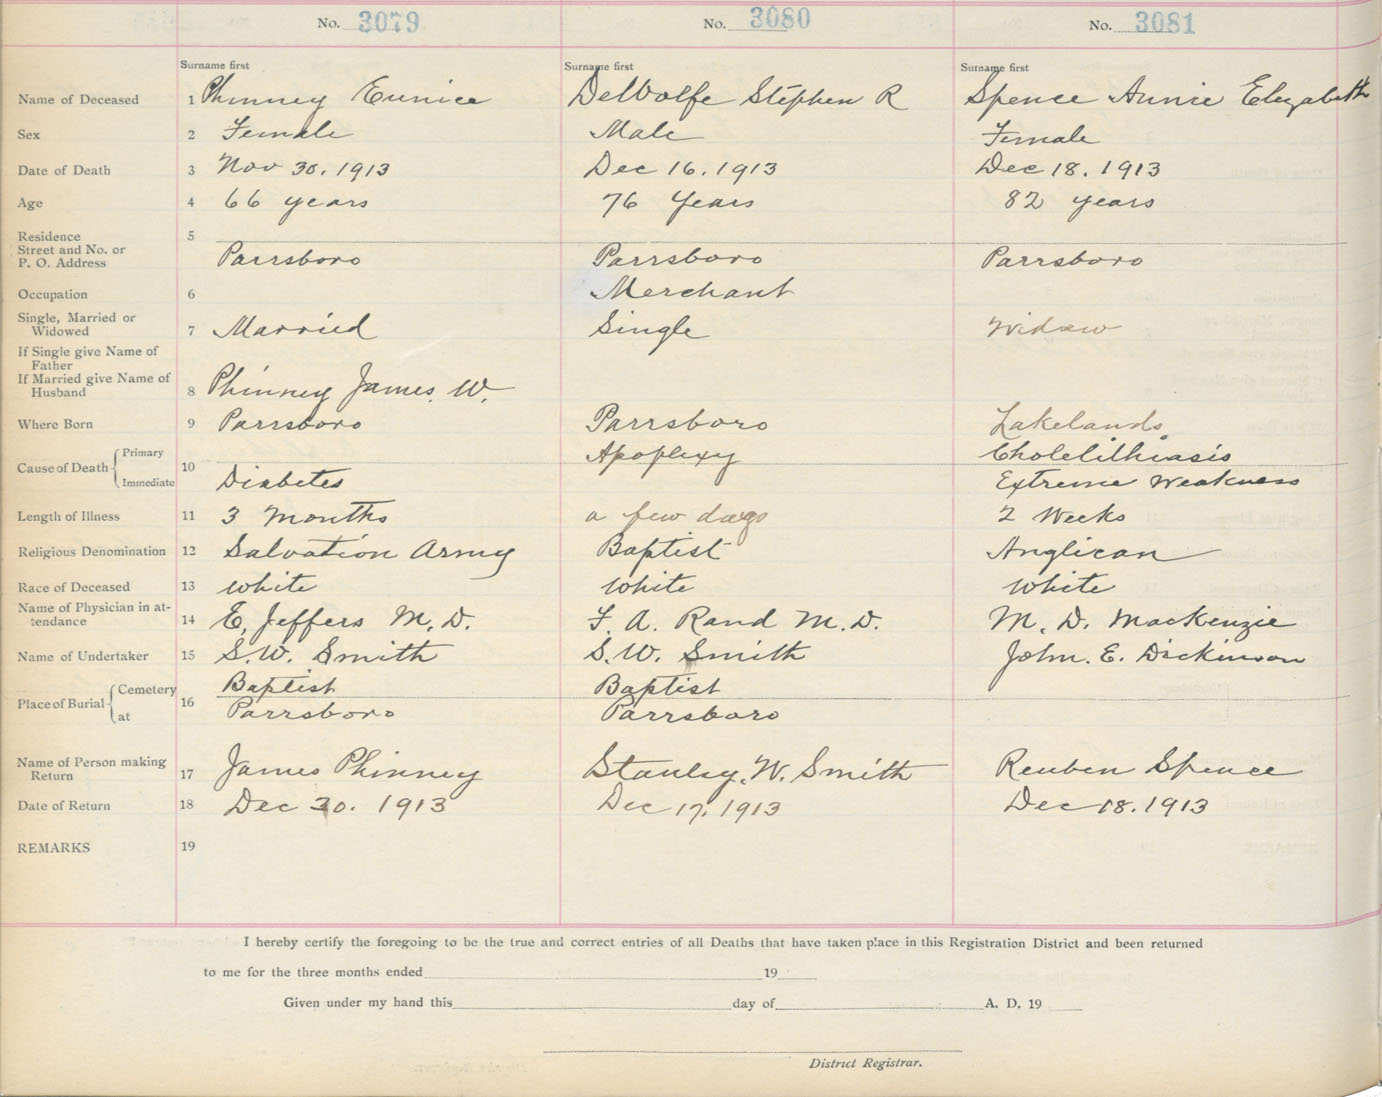 No. 3079 No. 3080 No. 3081
Surname first Surname first Surname first
Name of Deceased 1 Phinney Eunice DeWolfe Stephen R Spence Annie Elizabeth
Sex 2 Female Male Female
Date of Death 3 Nov 30. 1913 Dec 16. 1913 Dec 18. 1913
Age 4 66 years 76 Years 82 years
Residence 5
Street and No. or
P. O. Address Parrsboro Parrsboro Parrsboro
Occupation 6 Merchant
Single, Married or
Widowed 7 Married Single Widow
If Single give Name of
Father
If Married give Name of
Husband 8 Phinney James. W.
Where Born 9 Parrsboro Parrsboro Lakelands
Cause of Death Primary 10 Apoplexy Cholelithiasis
Immediate Diabetes Extreme Weakness
Length of Illness 11 3 Months a few days 2 Weeks
Religious Denomination 12 Salvation Army Baptist Anglican
Race of Deceased 13 White White White
Name of Physician in at-
tendance 14 E. Jeffers M. D. F. A. Rand M. D. M. D. MacKenzie
Name of Undertaker 15 S. W. Smith S. W. Smith John. E. Dickinson
Place of Burial Cemetery 16 Baptist Baptist
at Parrsboro Parrsboro
Name of Person making
Return 17 James Phinney Stanley. W. Smith Reuben Spence
Date of Return 18 Dec 30. 1913 Dec 17, 1913 Dec 18. 1913
REMARKS 19
I hereby certify the foregoing to be the true and correct entries of all Deaths that have taken place in this Registration District and been returned
to me for the three months ended 19
Given under my hand this day of A. D. 19
District Registrar.